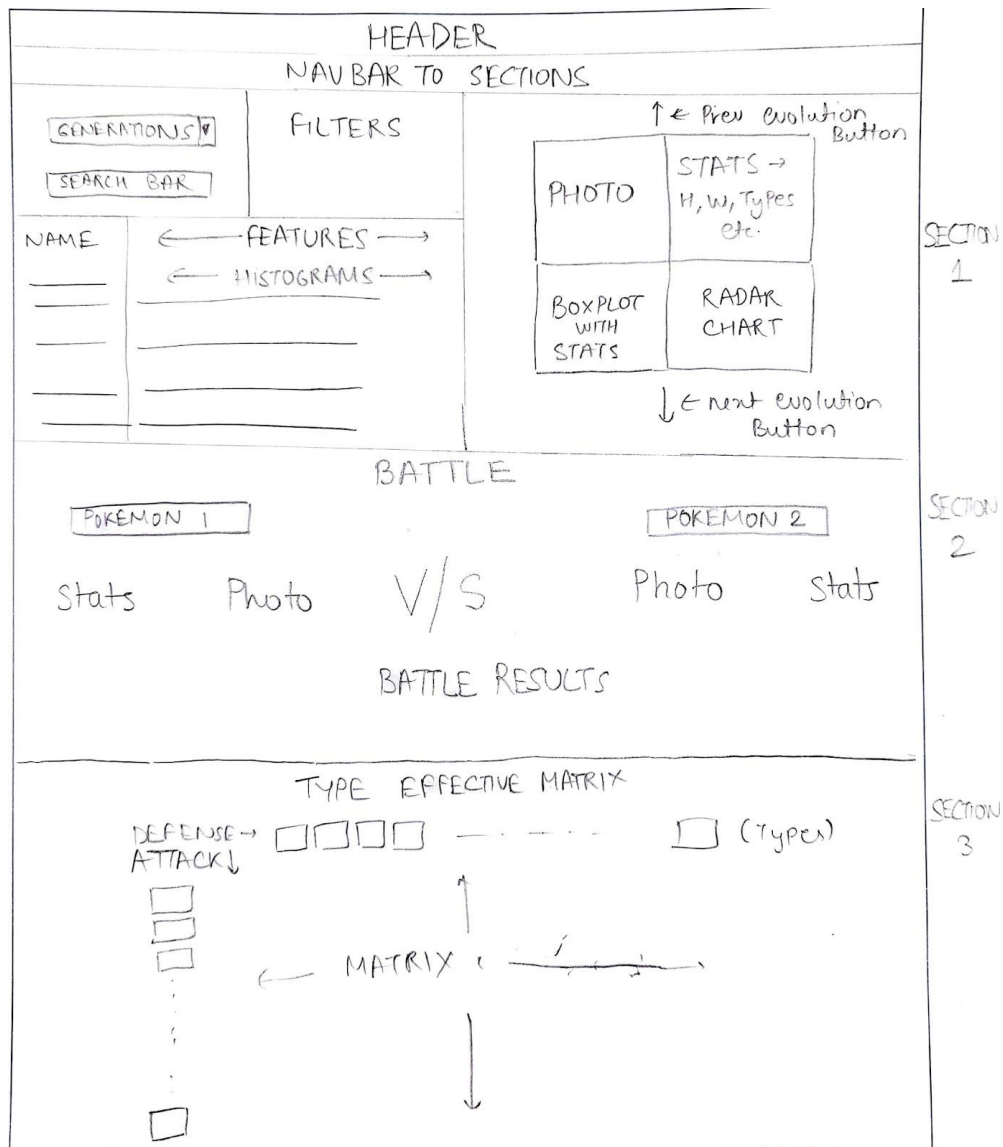 HEADER
NAVBAR TO SECTIONS
GENERATIONS
SEARCH BAR
FILTERS
NAME
FEATURES
HISTOGRAMS
↑ ← Prev evolution
Button
PHOTO
STATS →
H, W, Types
etc.
BOXPLOT
WITH
STATS
RADAR
CHART
↓ ← next evolution
Button
SECTION
1
BATTLE
POKEMON 1
POKEMON 2
Stats Photo V/S Photo Stats
BATTLE RESULTS
SECTION
2
TYPE EFFECTIVE MATRIX
DEFENSE →
ATTACK ↓
(Types)
MATRIX
SECTION
3